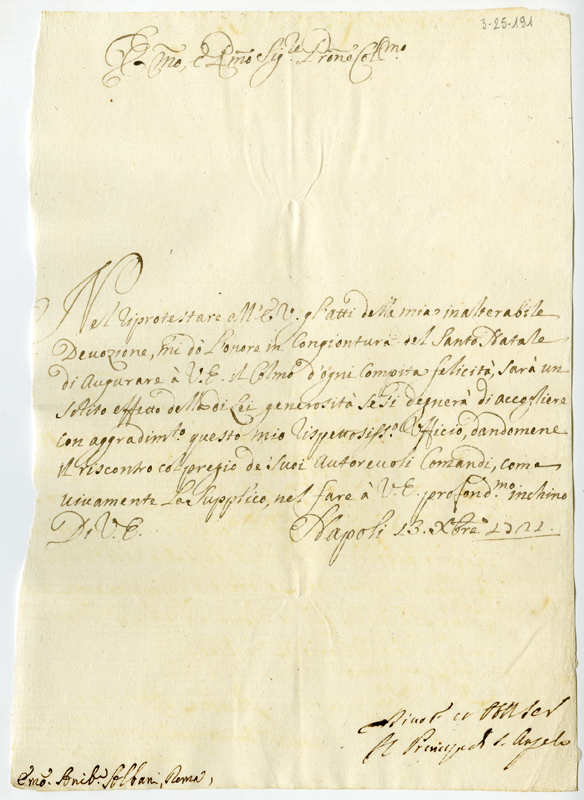 3-25-191
Em̃o, e Rm̃o Sig.re Pron̄e Col.mo
Nel riprotestare all'E.V. gl'atti della mia inalterabile
Devozione, mi dò l'onore in Congiontura del Santo Natale
di Augurare à V.E. il Colmo d'ogni Compita felicità, sarà un
solito effetto della di Lei generosità se si degnerà di accogliere
con aggradim.to questo mio rispettosiss.o Officio, dandomene
il riscontro co' pregio de i suoi Autorevoli Comandi, come
vivamente La Supplico, nel fare à V.E. profond.mo inchino
Di V.E. Napoli 13. Xbre 1721.
Divot. et Obb. Ser
Il Principe di S. Angelo
Em̃o. Anib.e Albani, Roma,